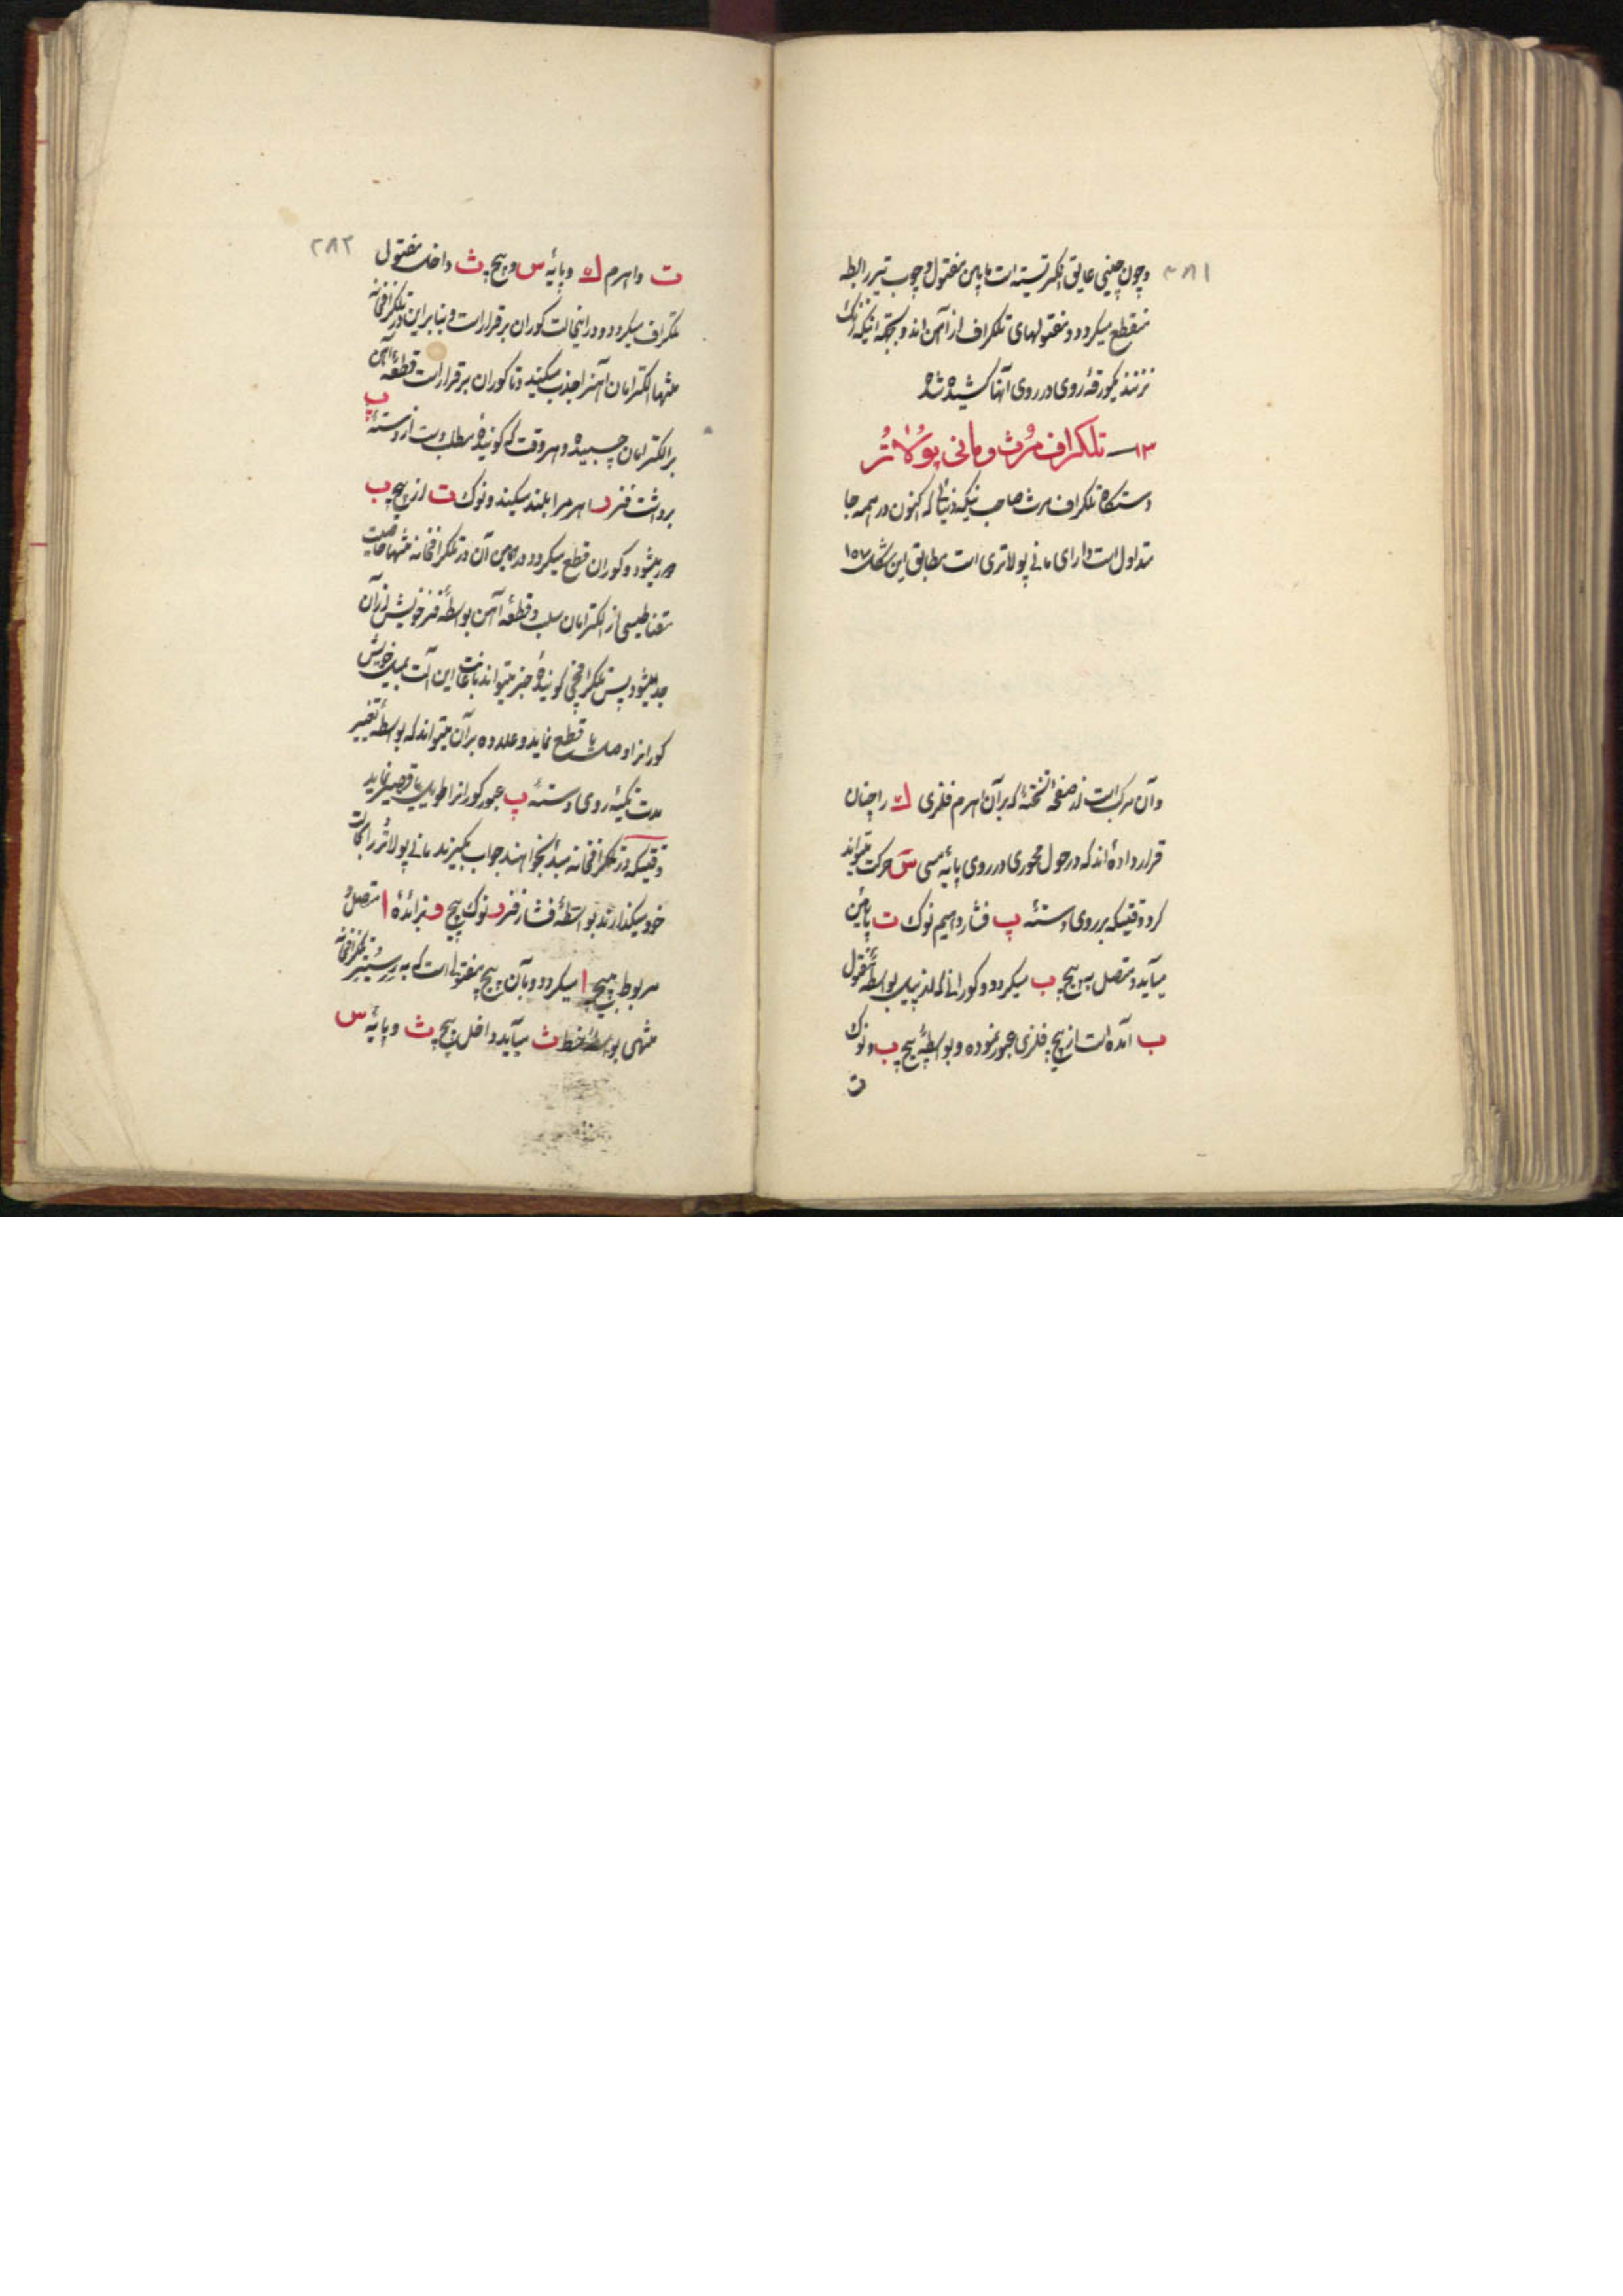 ۲۸۱
وچون چینی عایق الکتریسیته است مابین مفتول و چوب تیر رابطه
منقطع میگردد و مفتولهای تلگراف از آهن‌اند و بجهة اینکه زنگ
نزنند یکورقهٔ روی در روی آنها کشیده شده
۱۳ـ تلگراف مُرث و مانی پوُلاتُر
دستگاه تلگراف مرث صاحب نیکه‌دنیائی که اکنون در همه جا
متداول است دارای مانی پولاتری است مطابق این شکل ۱۵۷
وآن مرکب است از صفحهٔ تختهٔ که برآن اهرم فلزی ك را چنان
قرار داده‌اند که در حول محوری در روی پایهٔ مسی س حرکت میتواند
کرد وقتیکه بر روی دستهٔ پ فشار دهیم نوک ت پائین
میآید و متصل به پیچ ب میگردد و کورانی که از پیل بواسطهٔ مفتول
ب آمده است از پیچ فلزی عبور نموده و بواسطهٔ پیچ ب و نوک
ت
۲۸۲
ت واهرم ك وپایهٔ س و پیچ ث داخل مفتول
تلگراف میگردد و در اینحالت کوران برقرار است و بنابراین در تلگرافخانه
منتها الکترامان آهنرا جذب میکند و تا کوران برقرار است قطعهٔ آهن
بر الکترامان چسبیده و هر وقت که گویندهٔ مطلب دست از دستهٔ پ
برداشت فنر د اهرم را بلند میکند و نوک ت از پیچ ب
دور میشود و کوران قطع میگردد در مابین آن در تلگرافخانه منتها خاصیت
مقناطیسی از الکترامان سلب و قطعهٔ آهن بواسطهٔ فنر خویش از آن
جدا میشود پس تلگرافچی گویندهٔ خبر میتواند باعانت این آلت بمیل خویش
کورانرا وصل یا قطع نماید و علاوه برآن میتواند که بواسطهٔ تغییر
مدت تکیهٔ روی دستهٔ پ عبور کورانرا طویل یا قصیر نماید
وقتیکه در تلگرافخانه مبدأ بخواهند جواب بگیرند مانی پولاتُر را بحالت
خود میگذارند بواسطهٔ فشار فنر د نوک پیچ و بزائدهٔ ا متصل و
مربوط به پیچ ا میگردد و بآن پیچ مفتولی است که به رِسِپتُر تلگرافخانه
منتهی بواسطهٔ خط ث میآید داخل پیچ ث و پایهٔ س